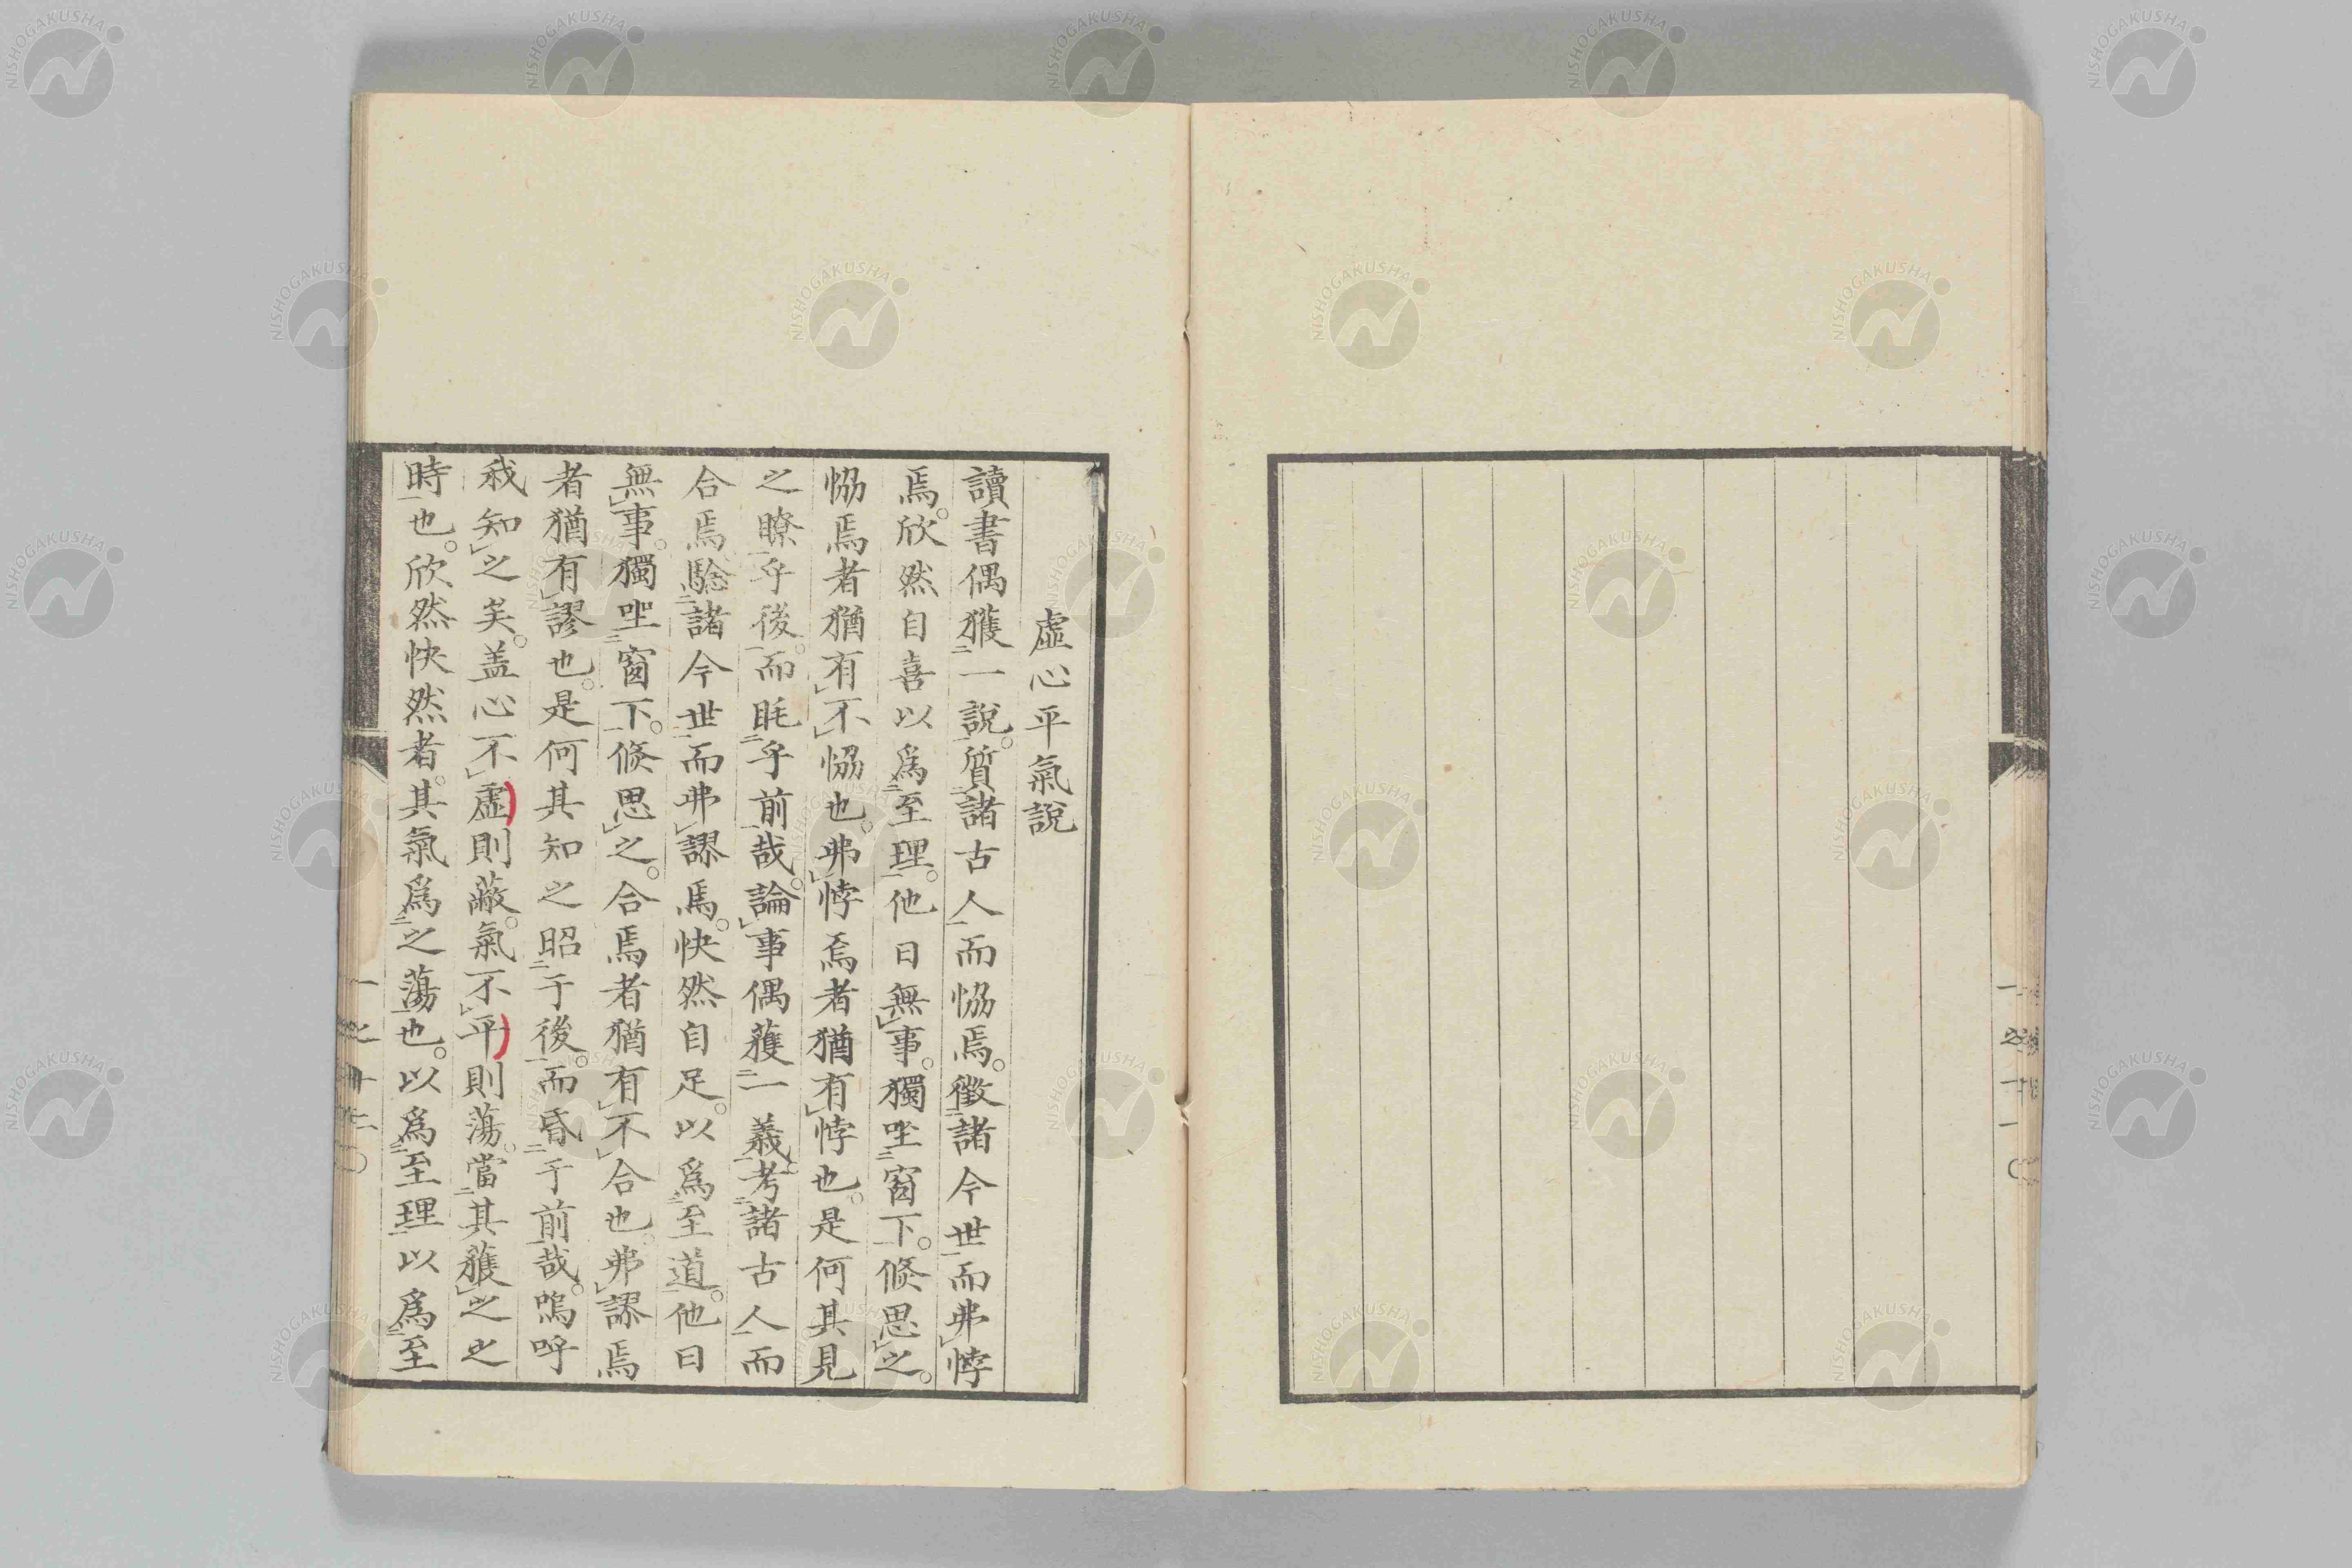 虛心平氣說
讀書偶獲一說。質諸古人而恊焉。徵諸今世而弗悖
焉。欣然自喜以爲至理。他日無事。獨坐窗下。倐思之。
恊焉者猶有不恊也。弗悖焉者猶有悖也。是何其見
之瞭乎後。而眊乎前哉。論事偶獲一義。考諸古人而
合焉驗諸今世而弗謬焉。快然自足。以爲至道。他日
無事。獨坐窗下。倐思之。合焉者猶有不合也。弗謬焉
者猶有謬也。是何其知之昭于後。而昏于前哉。嗚呼
我知之矣。盖心不虛則蔽。氣不平則蕩。當其獲之之
時也。欣然快然者。其氣爲之蕩也。以爲至理以爲至
NISHOGAKUSHA